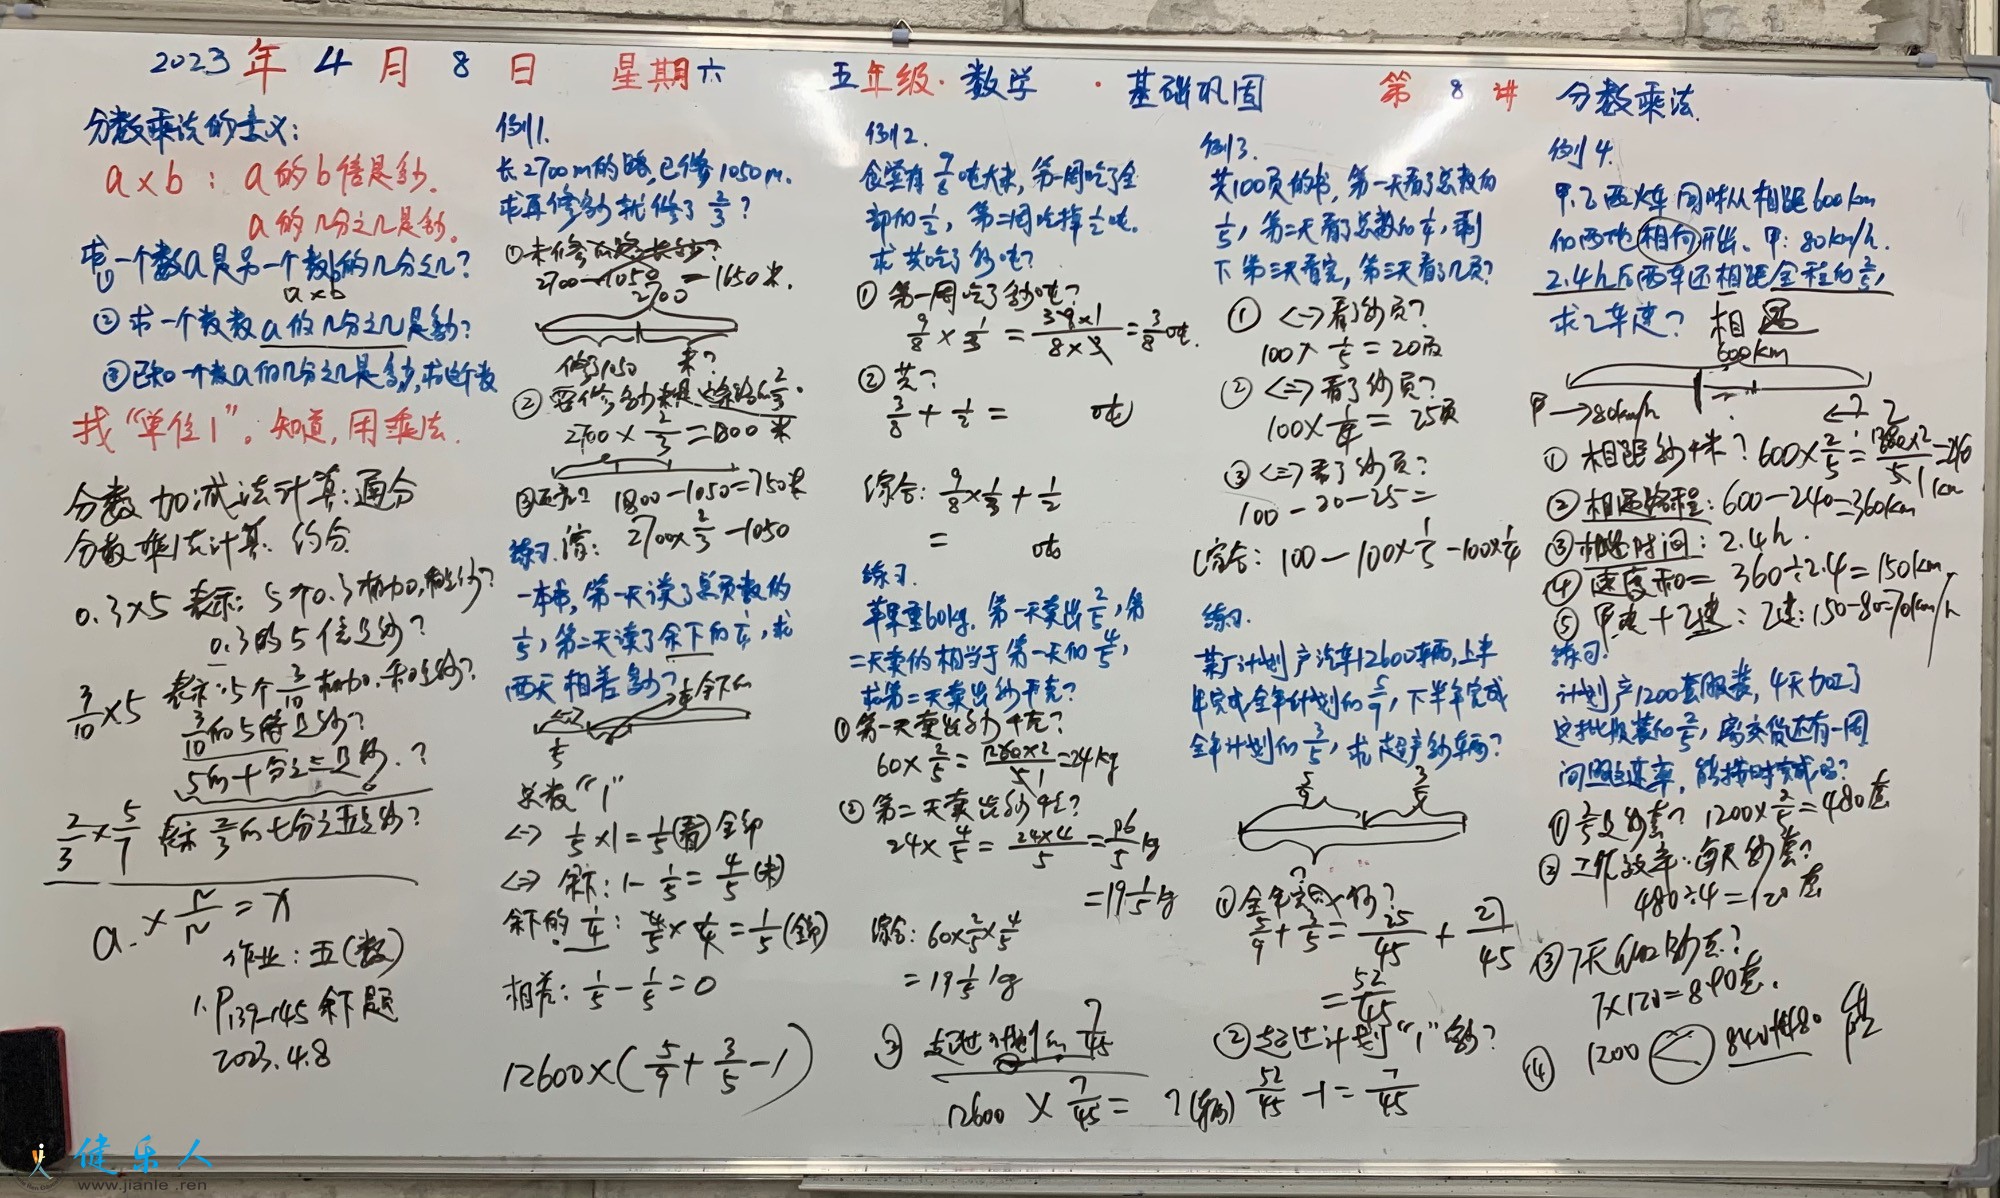 2023年4月8日 星期六 五年级·数学·基础巩固 第8讲 分数乘法
分数乘法的意义:
a×b:a的b倍是多少。
a的几分之几是多少。
①求一个数a是另一个数b的几分之几?
a×b
②求一个数数a的几分之几是多少?
③已知一个数a的几分之几是多少,求这个数
找“单位1”。知道,用乘法.
分数加减法计算:通分
分数乘法计算:约分
0.3×5 表示:5个0.3相加,和是多少?
0.3的5倍是多少?
3/10×5 表示:5个3/10相加.和是多少?
3/10的5倍是多少?
5的十分之三是多少.?
2/3×5/7 表示2/3的七分之五是多少?
作业:五(数)
1.P139-145余下题
2023.4.8
例1.
长2700m的路,已修1050m.
求再修多少就修了2/3?
①未修的路长多少?
2700-1050=1650米.
2700
修了1050 未?
②要修多少米是这条路的2/3.
2700×2/3=1800米
1800-1050=750米
综: 2700×2/3-1050
练习.
一本书,第一天读了总页数的
1/5,第二天读了余下的1/4,求
两天相差多少?
余下的
1/5
总数“1”
1/5×1=1/5(看)全部
余下:1-1/5=4/5(未)
余下的1/4:4/5×1/4=1/5(全部)
相差:1/5-1/5=0
12600×(5/9+3/5-1)
例2.
食堂有9/8吨大米,第一周吃了全
部的1/3,第二周吃掉1/2吨.
求共吃了多少吨?
①第一周吃了多少吨?
9/8×1/3=9×1/8×3=3/8吨.
②共?
3/8+1/2= 吨
综合:9/8×1/3+1/2
= 吨
练习.
苹果重60kg.第一天卖出2/5,第
二天卖的相当于第一天的4/5,
求第二天卖出多少千克?
①第一天卖出多少千克?
60×2/5=60×2/5=24kg
②第二天卖出多少千克?
24×4/5=24×4/5=96/5kg
=19 1/5kg
综合:60×2/5×4/5
=19 1/5kg
③超过计划的7/45
12600×7/45= ?(辆)
例3.
共100页的书,第一天看了总数的
1/5,第二天看了总数的1/4,剩
下第三天看完,第三天看了几页?
①<一>看了多少页?
100×1/5=20页
②<二>看了多少页?
100×1/4=25页
③<三>看了多少页?
100-20-25=
综合:100-100×1/5-100×1/4
练习.
某厂计划产汽车12600辆,上半
年完成全年计划的5/9,下半年完成
全年计划的3/5,求超产多少辆?
5/9 3/5
?
5/9+3/5=25/45+27/45
=52/45
②超过计划“1”多少?
52/45-1=7/45
例4.
甲.乙两火车同时从相距600km
的两地相向开出.甲:80km/h.
2.4h后两车还相距全程的2/5,
求乙车速? 相遇
600km
甲→80km/h ←? 乙
①相距多少千米?600×2/5=600×2/5=240km
②相遇路程:600-240=360km
③相遇时间:2.4h.
④速度和=360÷2.4=150km/h
⑤甲速+乙速:乙速:150-80=70km/h
练习:
计划产1200套服装,4天加工了
这批服装的2/5,离交货还有一周
问照这速率,能按时完成吗?
①2/5是多少套?1200×2/5=480套
②工作效率:每天多少套?
480÷4=120套
③7天加工多少套?
7×120=840套.
④1200<840+480 能
健乐人
www.jianle.ren